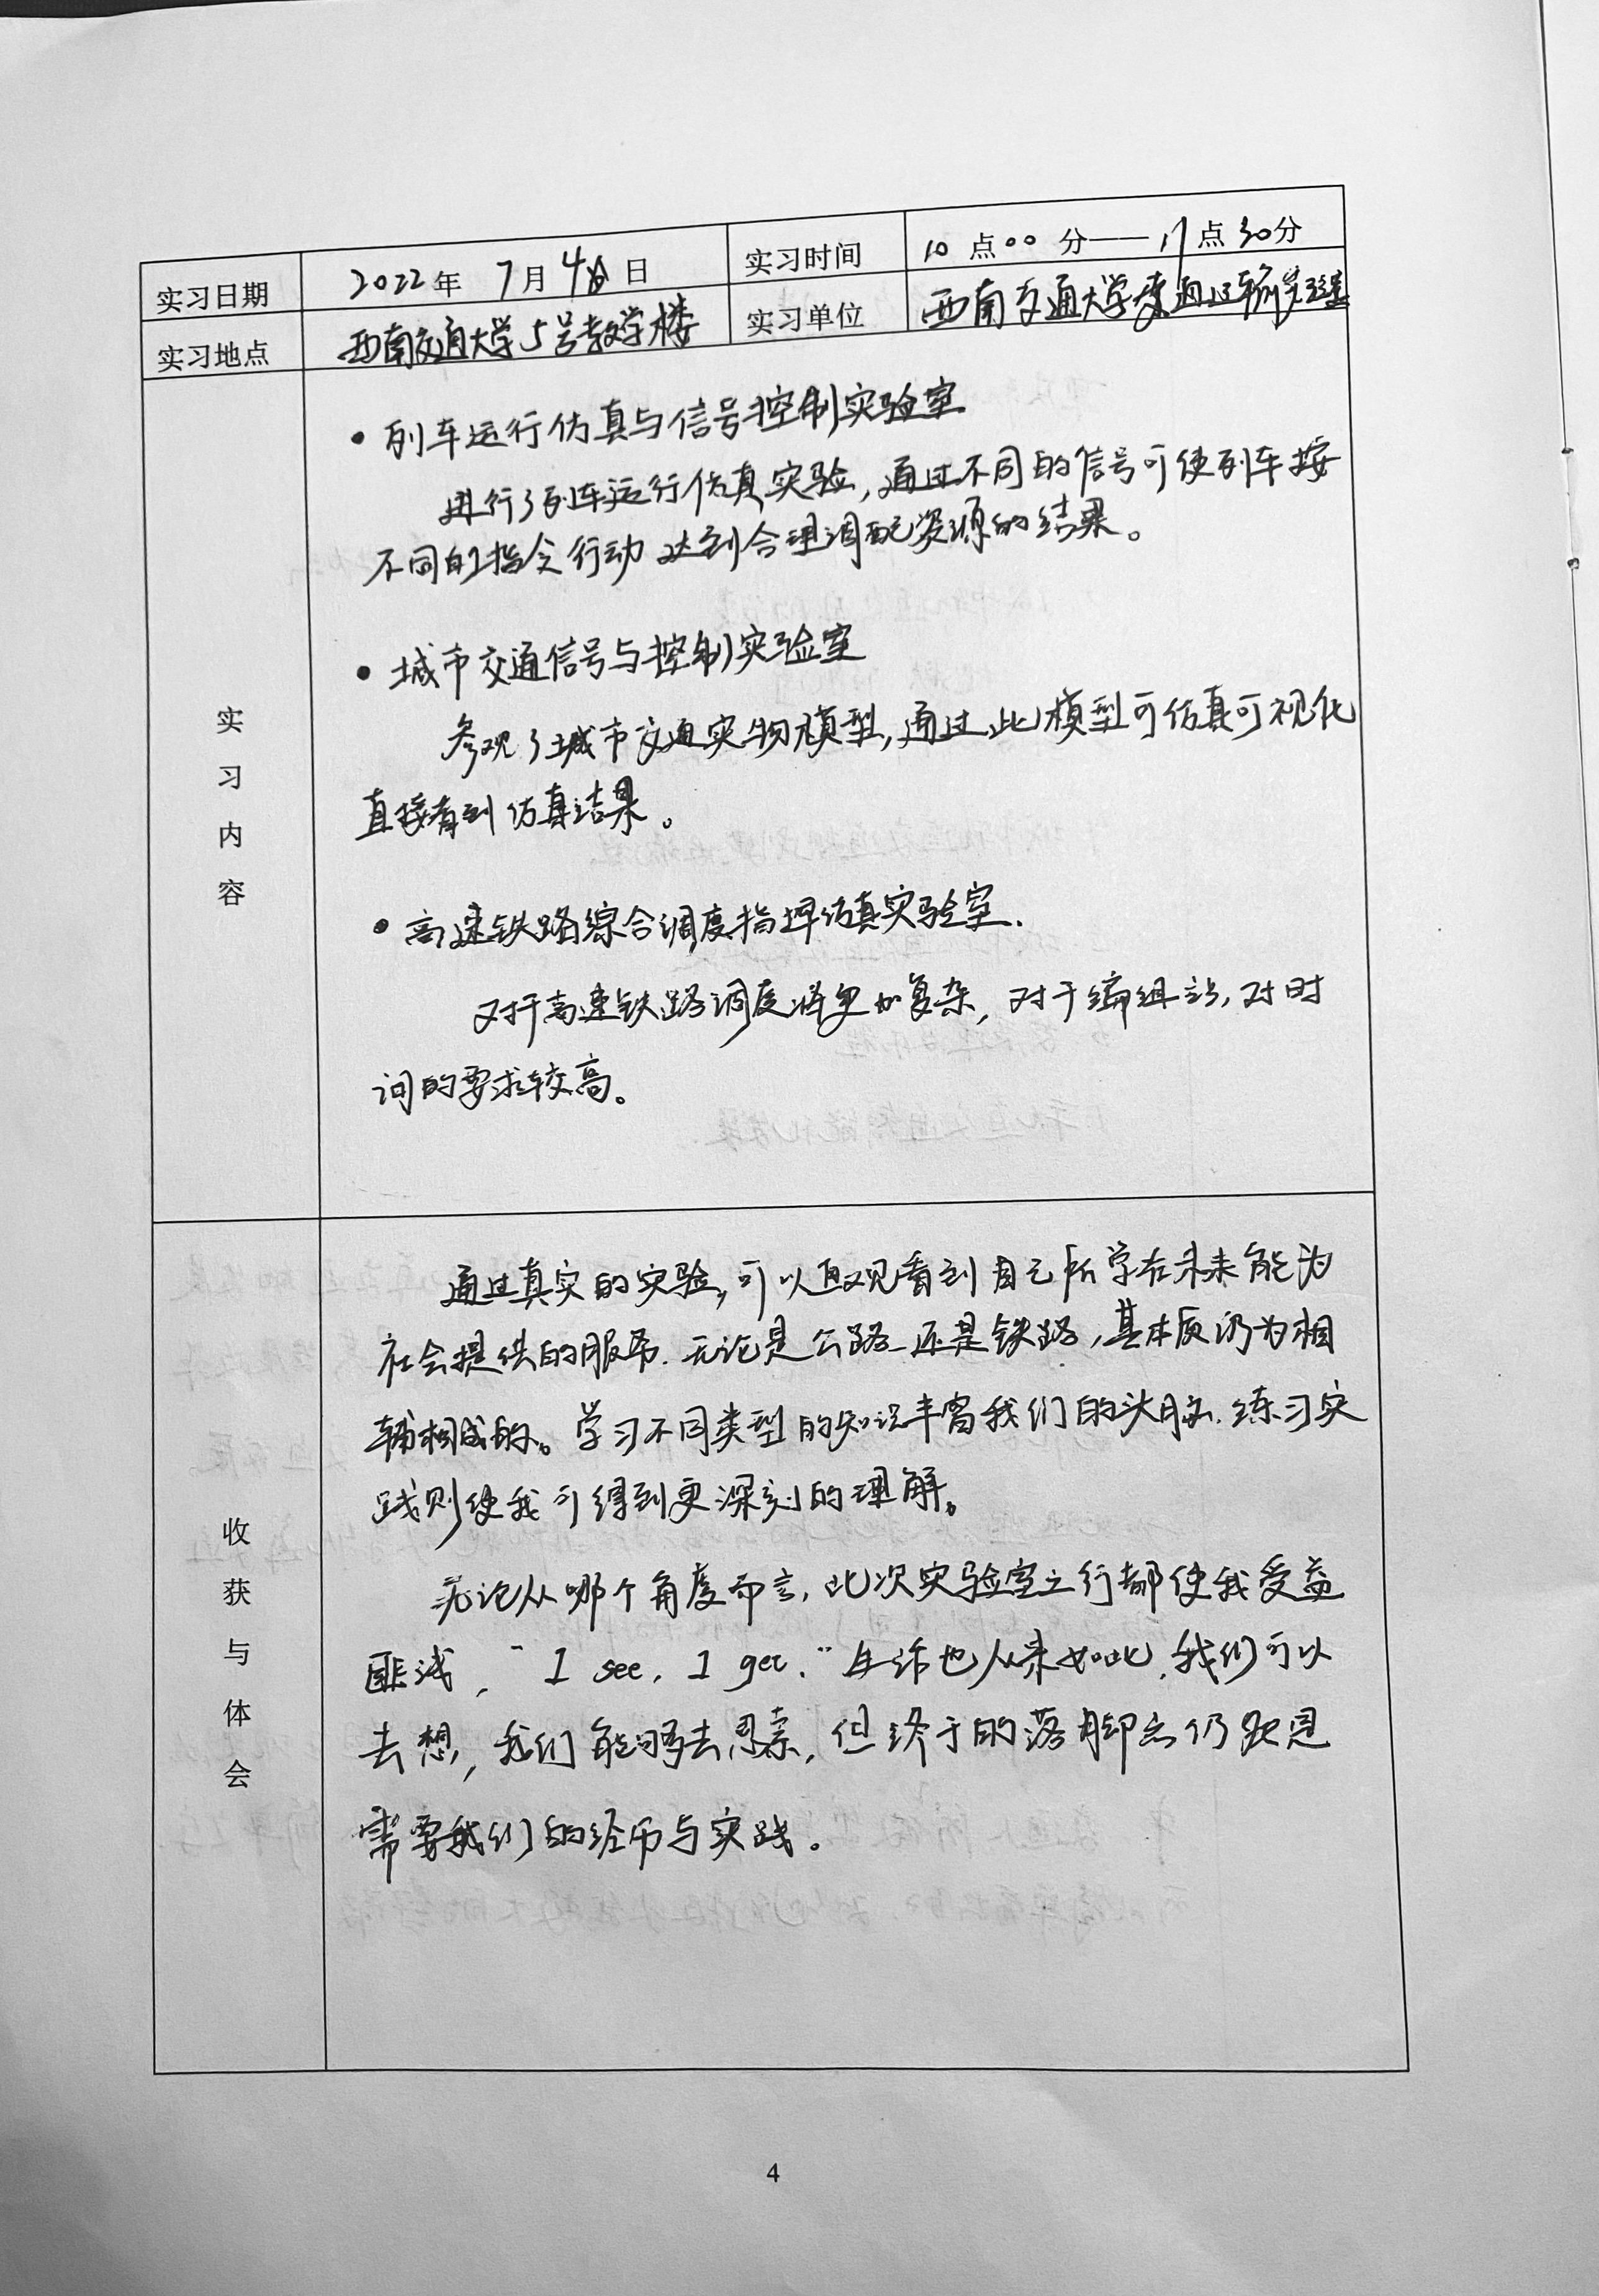 实习日期 2022年 7月 4日 实习时间 10点00分——17点30分
实习地点 西南交通大学5号教学楼 实习单位 西南交通大学交通运输
实习内容
• 列车运行仿真与信号控制实验室
进行了列车运行仿真实验,通过不同的信号可使列车按
不同的指令行动 达到合理调配资源的结果。
• 城市交通信号与控制实验室
参观了城市交通实物模型,通过此模型可仿真可视化
直接看到仿真结果。
• 高速铁路综合调度指挥仿真实验室.
对于高速铁路调度将更加复杂,对于编组站,对时
间的要求较高。
收获与体会
通过真实的实验,可以直观看到自己所学在未来能为
社会提供的服务.无论是公路还是铁路,其本质仍为相
辅相成的。学习不同类型的知识丰富我们的头脑.练习实
践则使我可得到更深刻的理解。
无论从哪个角度而言,此次实验室之行都使我受益
匪浅,"I see, I get."生活也从来如此,我们可以
去想,我们能够去思索,但终于的落脚点仍
需要我们的经历与实践。
4